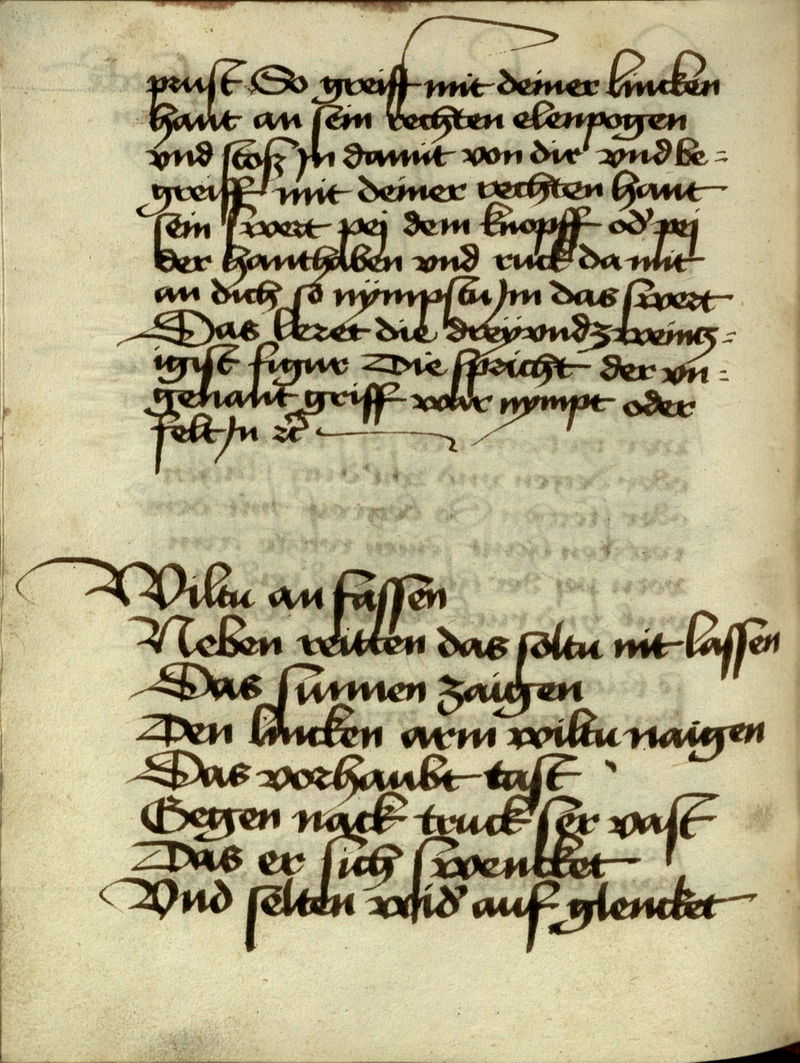 prust So greiff mit deiner lincken
hant an sein rechten elenpogen
vnd stosz Jn damit von dir vnd be=
greiff mit deiner rechten hant
sein swert pej dem knopff od' pej
der hanthaben vnd ruck da mit
an dich so nÿmpstu Jm das swert
Das leret die dreÿ vnd zweincz=
igist figur Die spricht der vn=
genant griff war nÿmpt oder
felt Jn ꝛc̃
Wiltu an fassen
Neben reitten das soltu nit lassen
Das sunnen zaigen
Den lincken arm wiltu naigen
Das vorhaubt tast
Gegen nack truck ser vast
Das er sich swencket
Vnd selten wid' auf glencket